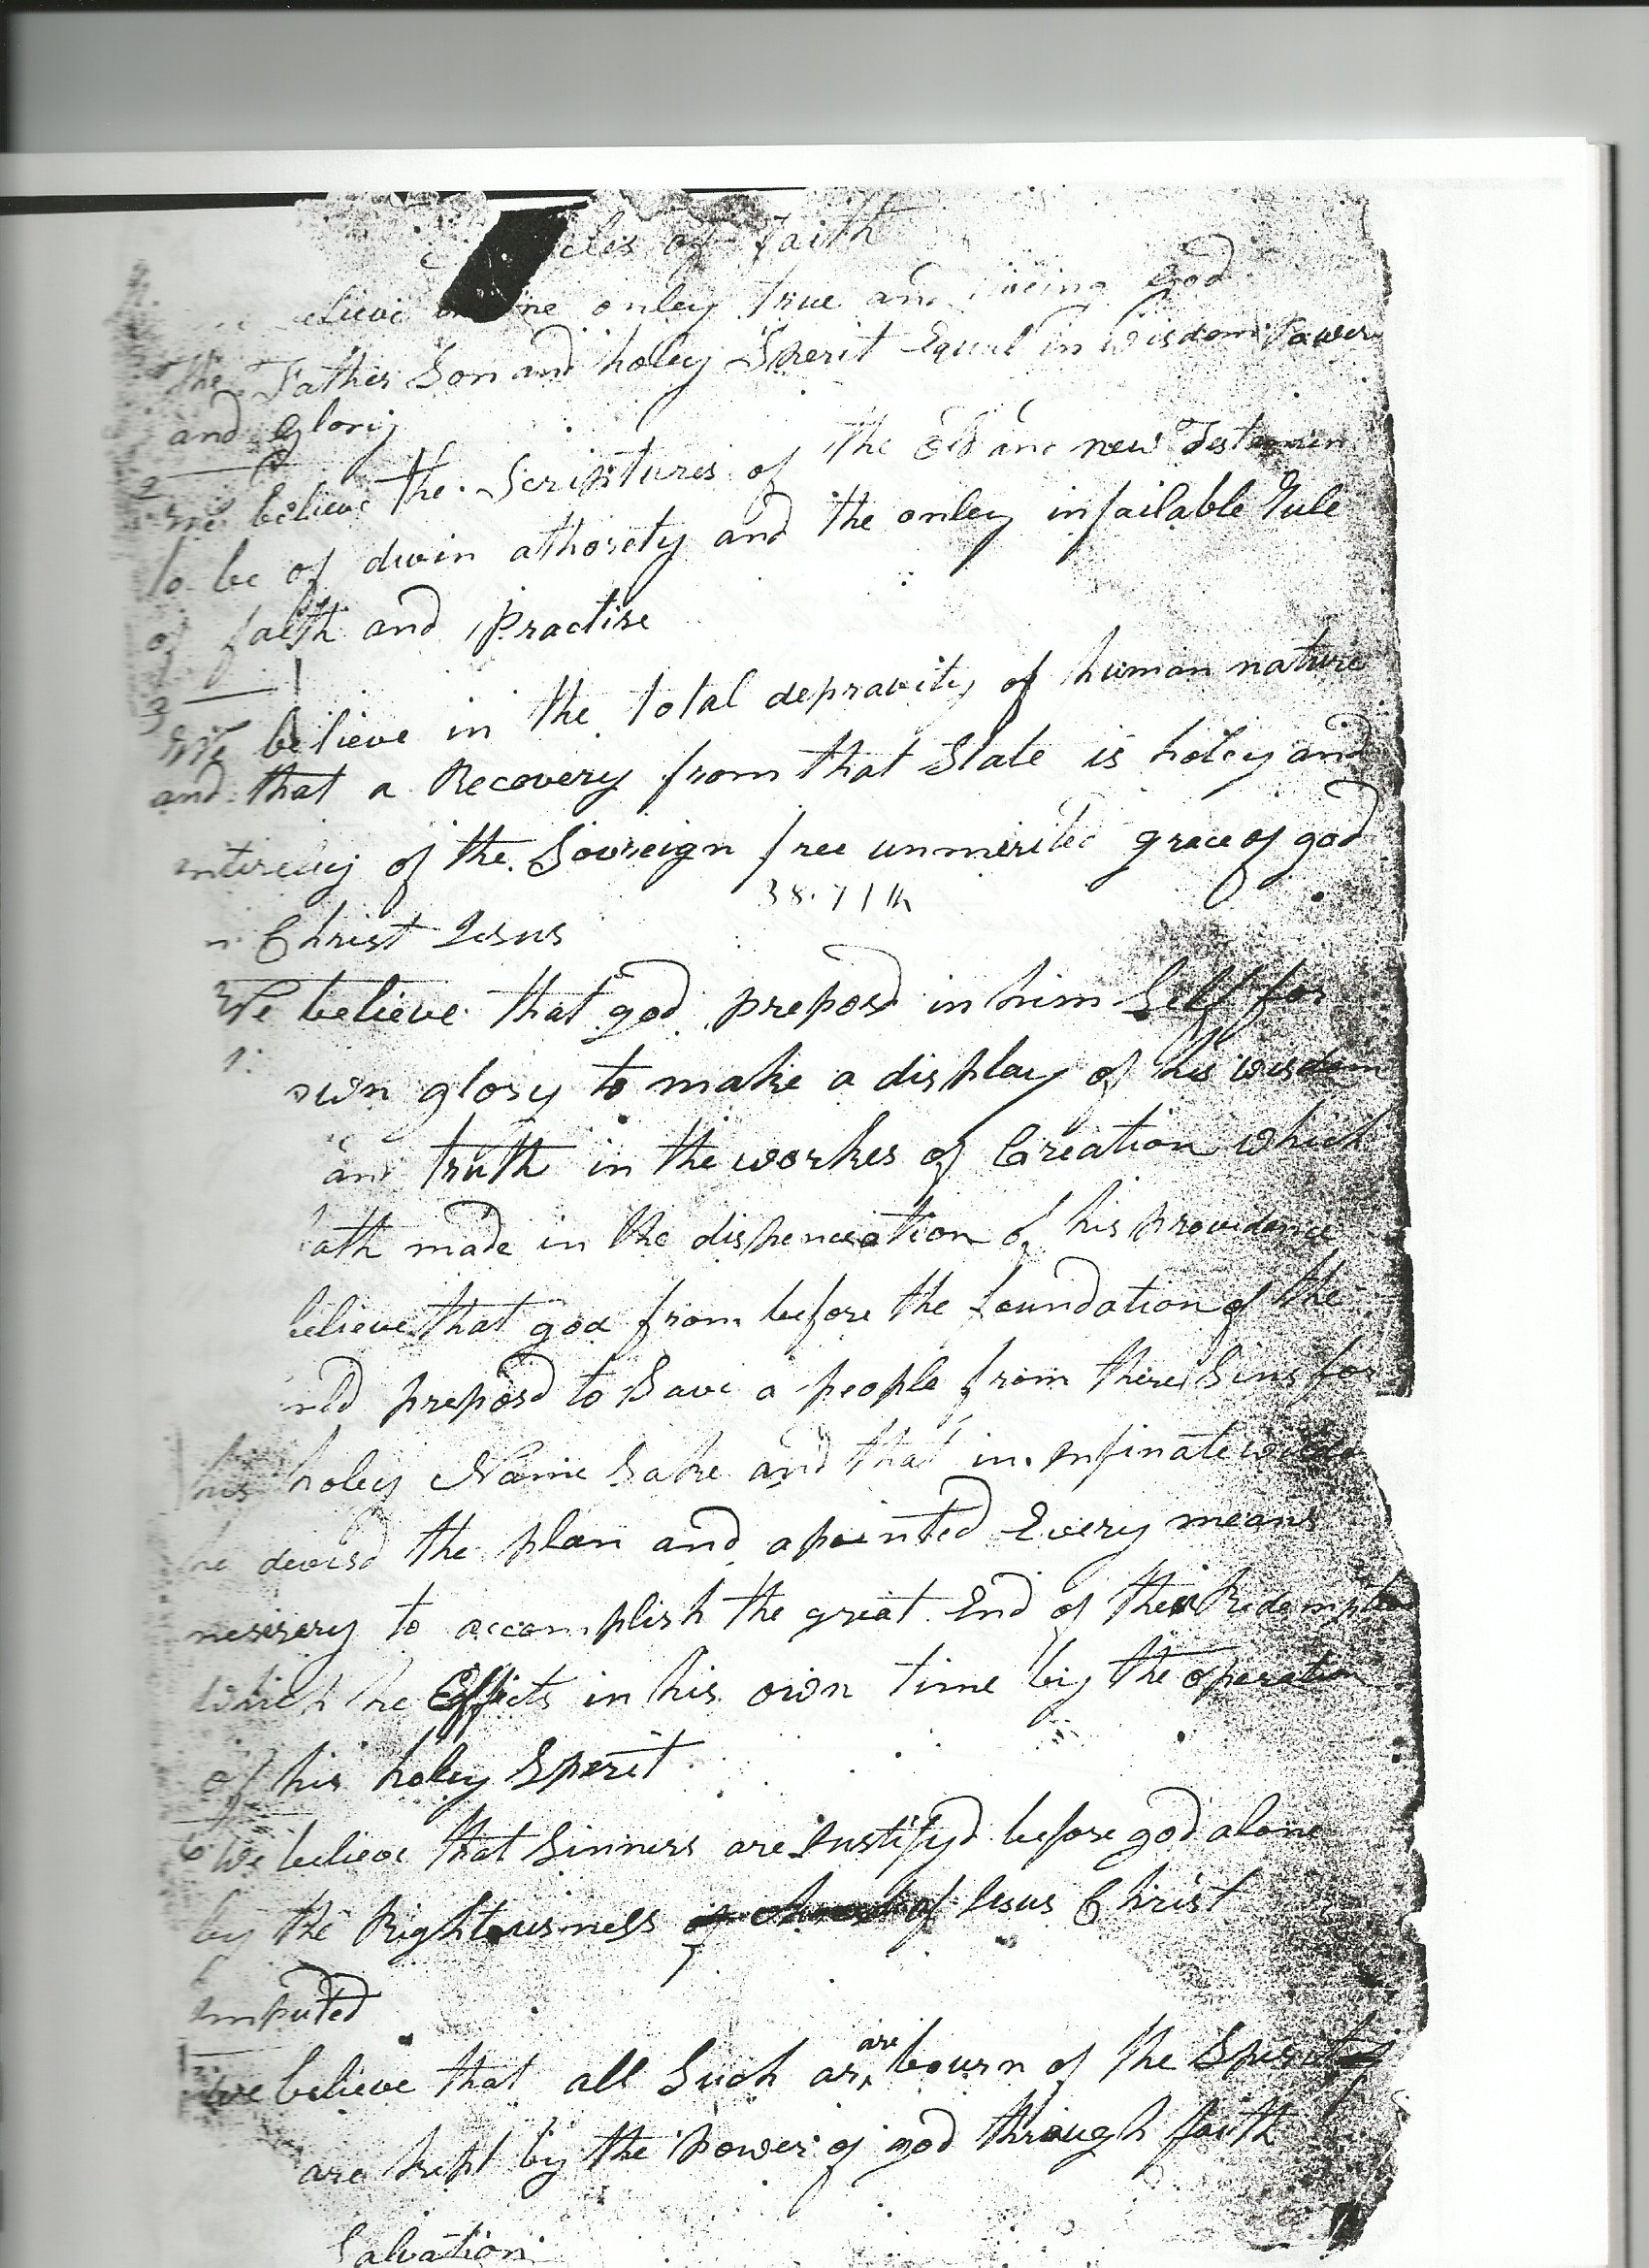 cles of faith
elieve ne onley true and living God
the Father Son and holey Sperit Equal in wisdom Power
and Glory
2
We believe the Scriptures of the Old and new Testamen
to be of divin athorety and the onley infailable Rule
of faith and Practise
3
We believe in the total depravity of human nature
and that a Recovery from that State is holey and
entireley of the Sovreign free unmerited grace of god
n Christ Jesus
We believe that god proposd in him Self for
own glory to make a display of his wisdom
and truth in the workes of Creation which
ath made in the dispenceation of his providence
believe that god from before the foundation of the
rld proposd to Save a people from there Sins for
his holey Name Sake and that in infinate wisdo
he devisd the plan and apointed Every means
nesesery to accomplish the great End of their Redemption
which he Effects in his own time by the operation
of his holey Sperit
6 We believe that Sinners are Justifyd before god alone
by the Rightousness of Jesus Christ
imputed
We believe that all Such as are bourn of the Sperit of
are kept by the power of god through faith
Salvation